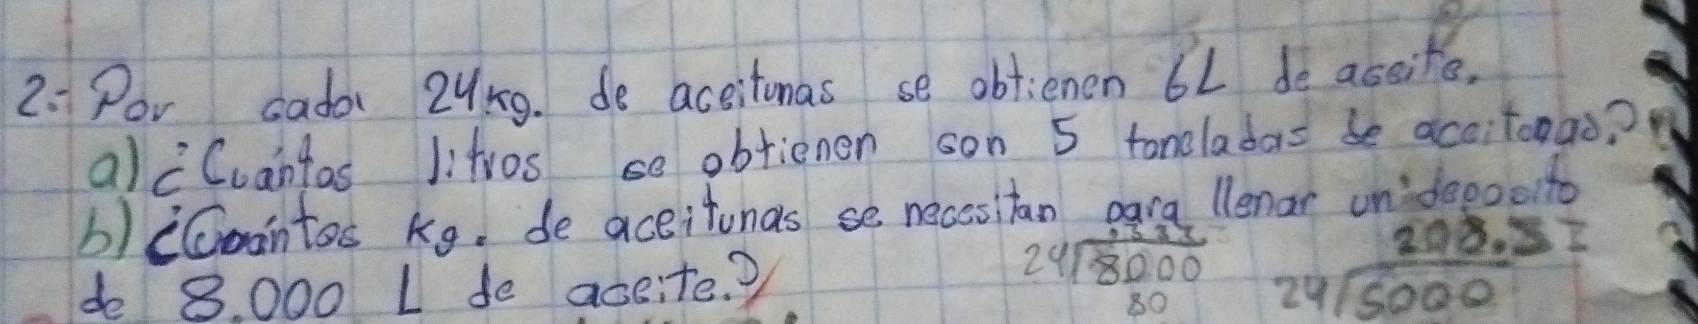 2.- Por cada 24 kg. de aceitunas se obtienen 6L de aceite.
a) ¿Cuántos litros se obtienen con 5 toneladas de aceitunas?
b) ¿Cuántos kg. de aceitunas se necesitan para llenar un deposito
de 8.000 L de aceite.?
.333
24 8000
80
208.3
24 5000